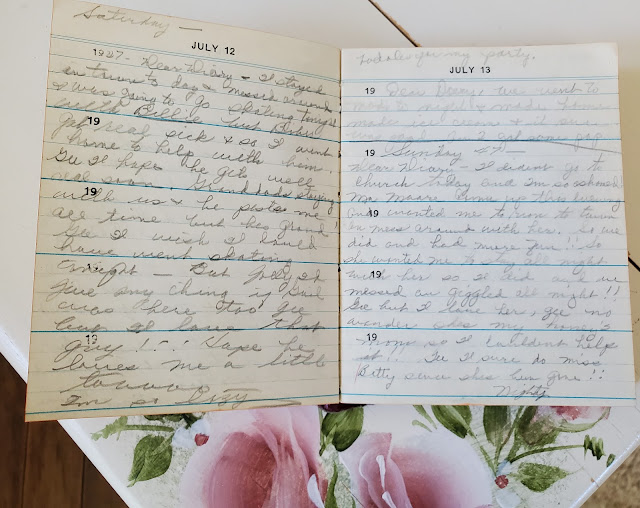 Saturday —
JULY 12
1937- Dear Diary - I stayed
in town to day & messed around
& was going to go skating tonight
with Billie but Baby
got real sick & so I
home to help with him.
Gee I hope he gets well
real soon. Granddads staying
19
with us & he pesters me
all time but he's grand!
Gee I wish I could
have went skating
19
tonight — But golly I'd
give any thing if
was here too! Gee
but I love that
19
guy! Hope he
loves me a little
too
I'm so
for my party.
JULY 13
19 Dear Diary, we went to
to night & made home
made ice cream & it sure
was good.
19 Sunday
Dear Diary - I didn't go to
church today and I'm so ashamed!
came up this
19
and wanted me to run to town
an mess around with her. So we
did and had more fun!! So
she wanted me to stay all night
19
with her so I did and we
messed an giggled all night!!
Gee but I love her, gee no
wonder she's my
19
mom so I couldent help
it!!! Gee I sure do miss
Betty sence shes ben gone!!
Nighty